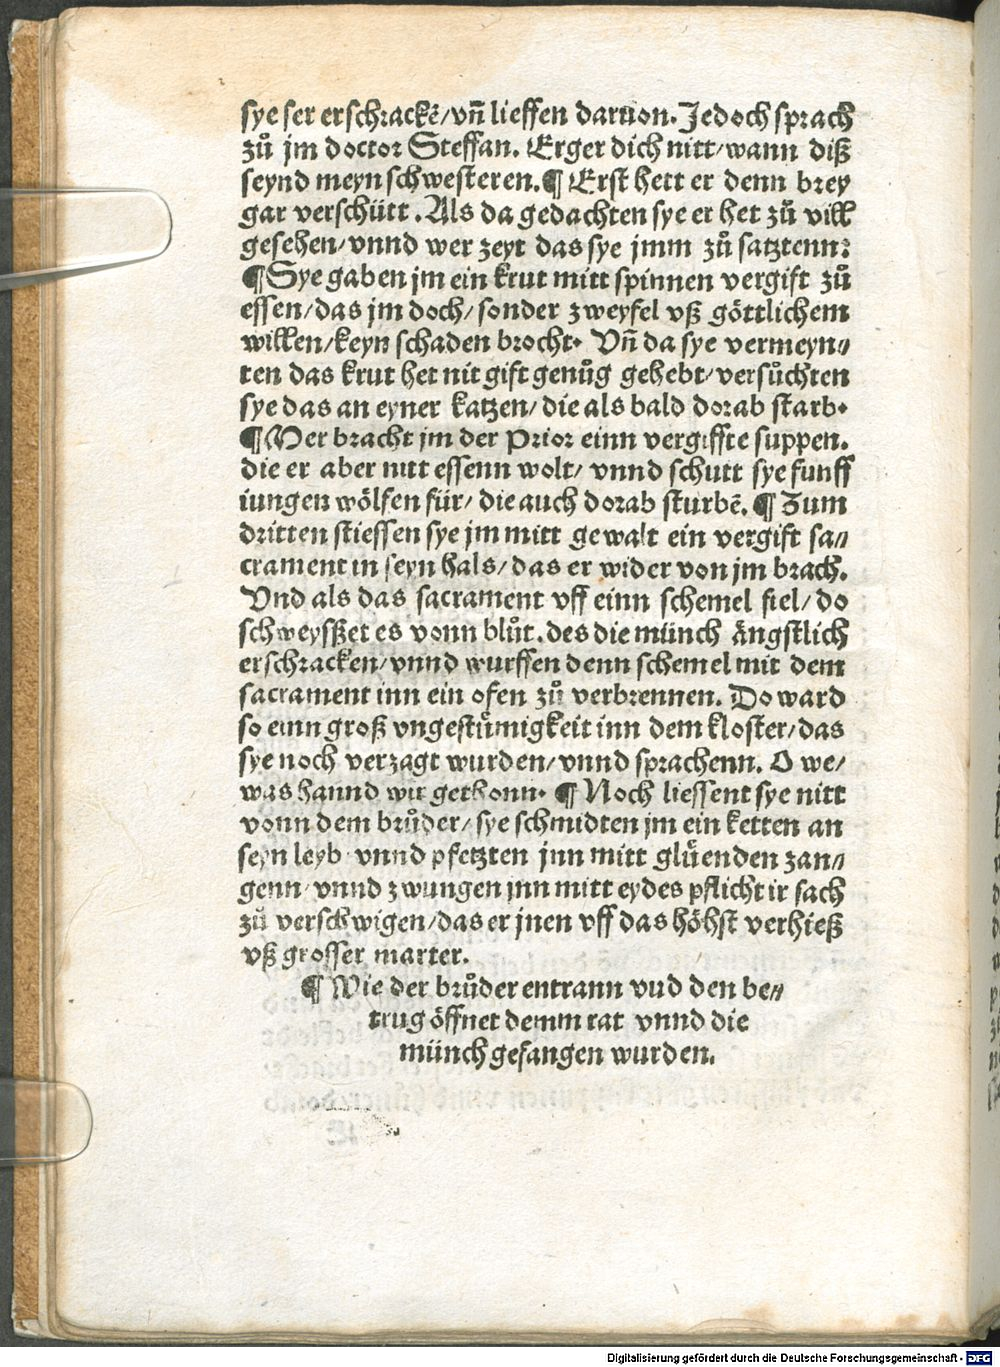 sye ser erschrackẽ/vñ lieffen daruon. Jedoch sprach
zů jm doctor Steffan. Erger dich nitt/wann diß
seynd meyn schwesteren. ¶ Erst hett er denn brey
gar verschütt. Als da gedachten sye er het zů vill
gesehen/vnnd wer zeyt das sye jmm zů satztenn:
¶ Sye gaben jm ein krut mitt spinnen vergift zů
essen/das jm doch/sonder zweyfel vß göttlichem
willen/keyn schaden brocht. Vñ da sye vermeyn⸗
ten das krut het nit gift genůg gehebt/versůchten
sye das an eyner katzen/die als bald dorab starb.
¶ Mer bracht jm der Prior einn vergiffte suppen.
die er aber nitt essenn wolt/vnnd schutt sye funff
iungen wölfen für/die auch dorab sturbẽ. ¶ Zum
dritten stiessen sye jm mitt gewalt ein vergift sa⸗
crament in seyn hals/das er wider von jm brach.
Vnd als das sacrament vff einn schemel fiel/do
schweyßet es vonn blůt. des die münch ängstlich
erschracken/vnnd wurffen denn schemel mit dem
sacrament inn ein ofen zů verbrennen. Do ward
so einn groß vngestümigkeit inn dem kloster/das
sye noch verzagt wurden/vnnd sprachenn. O we/
was hannd wir gethonn. ¶ Noch liessent sye nitt
vonn dem brůder/sye schmidten jm ein ketten an
seyn leyb vnnd pfetzten jnn mitt glüenden zan⸗
genn/vnnd zwungen jnn mitt eydes pflicht ir sach
zů verschwigen/das er jnen vff das höhst verhieß
vß grosser marter.
¶ Wie der brůder entrann vnd den be⸗
trug öffnet demm rat vnnd die
münch gefangen wurden.
Digitalisierung gefördert durch die Deutsche Forschungsgemeinschaft - DFG